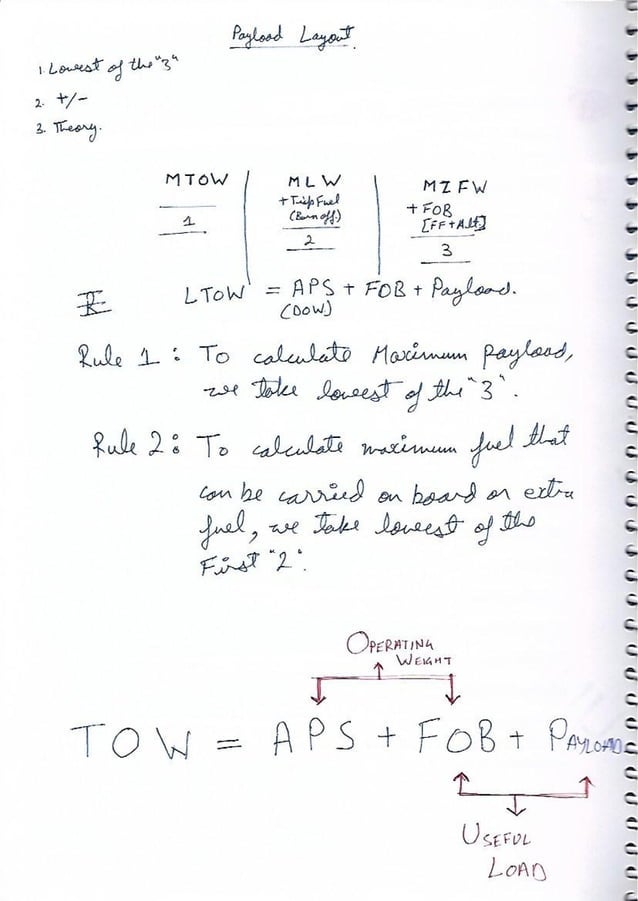 Payload Layout.
1. Lowest of the "3"
2. +/-
3. Theory.
MTOW
1
MLW
+ Trip Fuel
(Burn off)
2
MZFW
+ FOB
[FF + Alt]
3
LTOW = APS + FOB + Payload.
(DOW)
Rule 1 : To calculate Maximum payload,
we take lowest of the "3".
Rule 2 : To calculate maximum fuel that
can be carried on board or extra
fuel, we take lowest of the
First "2".
OPERATING
WEIGHT
TOW = APS + FOB + PAYLOAD
USEFUL
LOAD